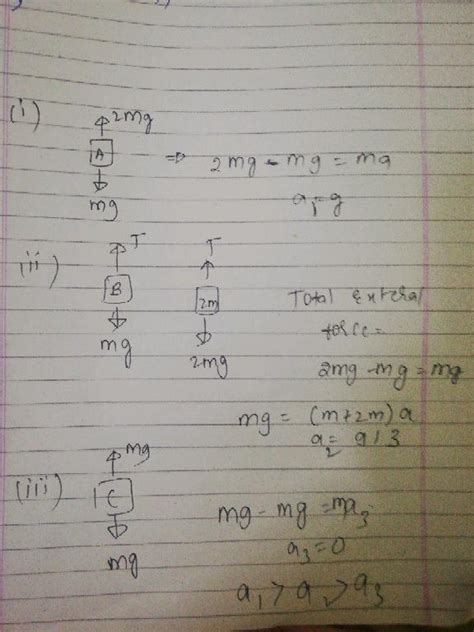 (i)
2mg
A
mg
⇒ 2mg - mg = ma
a₁=g
(ii)
T
B
mg
T
2m
2mg
Total extral
force=
2mg - mg = mg
mg = (m+2m)a
a₂= g/3
(iii)
mg
C
mg
mg - mg = ma₃
a₃=0
a₁ > a₂ > a₃